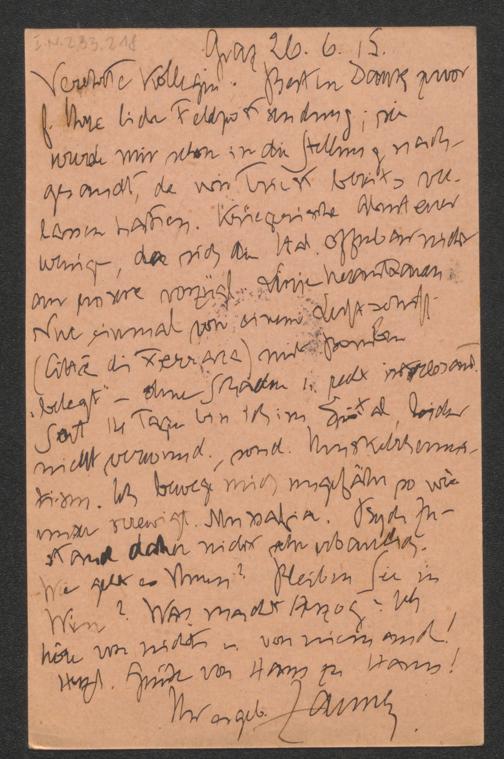 I.N. 233.218
Graz 26. 6. 15.
Verehrte Kollegin. Besten Dank zuvor
f. Ihre liebe Feldpostsendung; sie
wurde mir schon in die Stellung nach-
gesandt, da wir Triest bereits ver-
lassen hatten. Kriegerische Abenteuer
wenige, da sich die Ital. offenbar nicht
an unsere vorzügl. Linie herantrauen.
Nur einmal von einem Luftschiff
(Città di Ferrara) mit Bomben
"belegt" – ohne Schaden u. recht interessant.
Seit 14 Tagen bin ich im Spital, leider
nicht verwund., sond. Muskelrheuma-
tism. Ich bewege mich ungefähr so wie
unser
Psych. Zu-
stand daher nicht sehr erbaulich.
Wie geht es Ihnen? Bleiben Sie in
Wien? Was macht Herzog? Ich
höre von nichts u. von niemand!
Herzl. Grüße von Haus zu Haus!
Ihr ergeb.